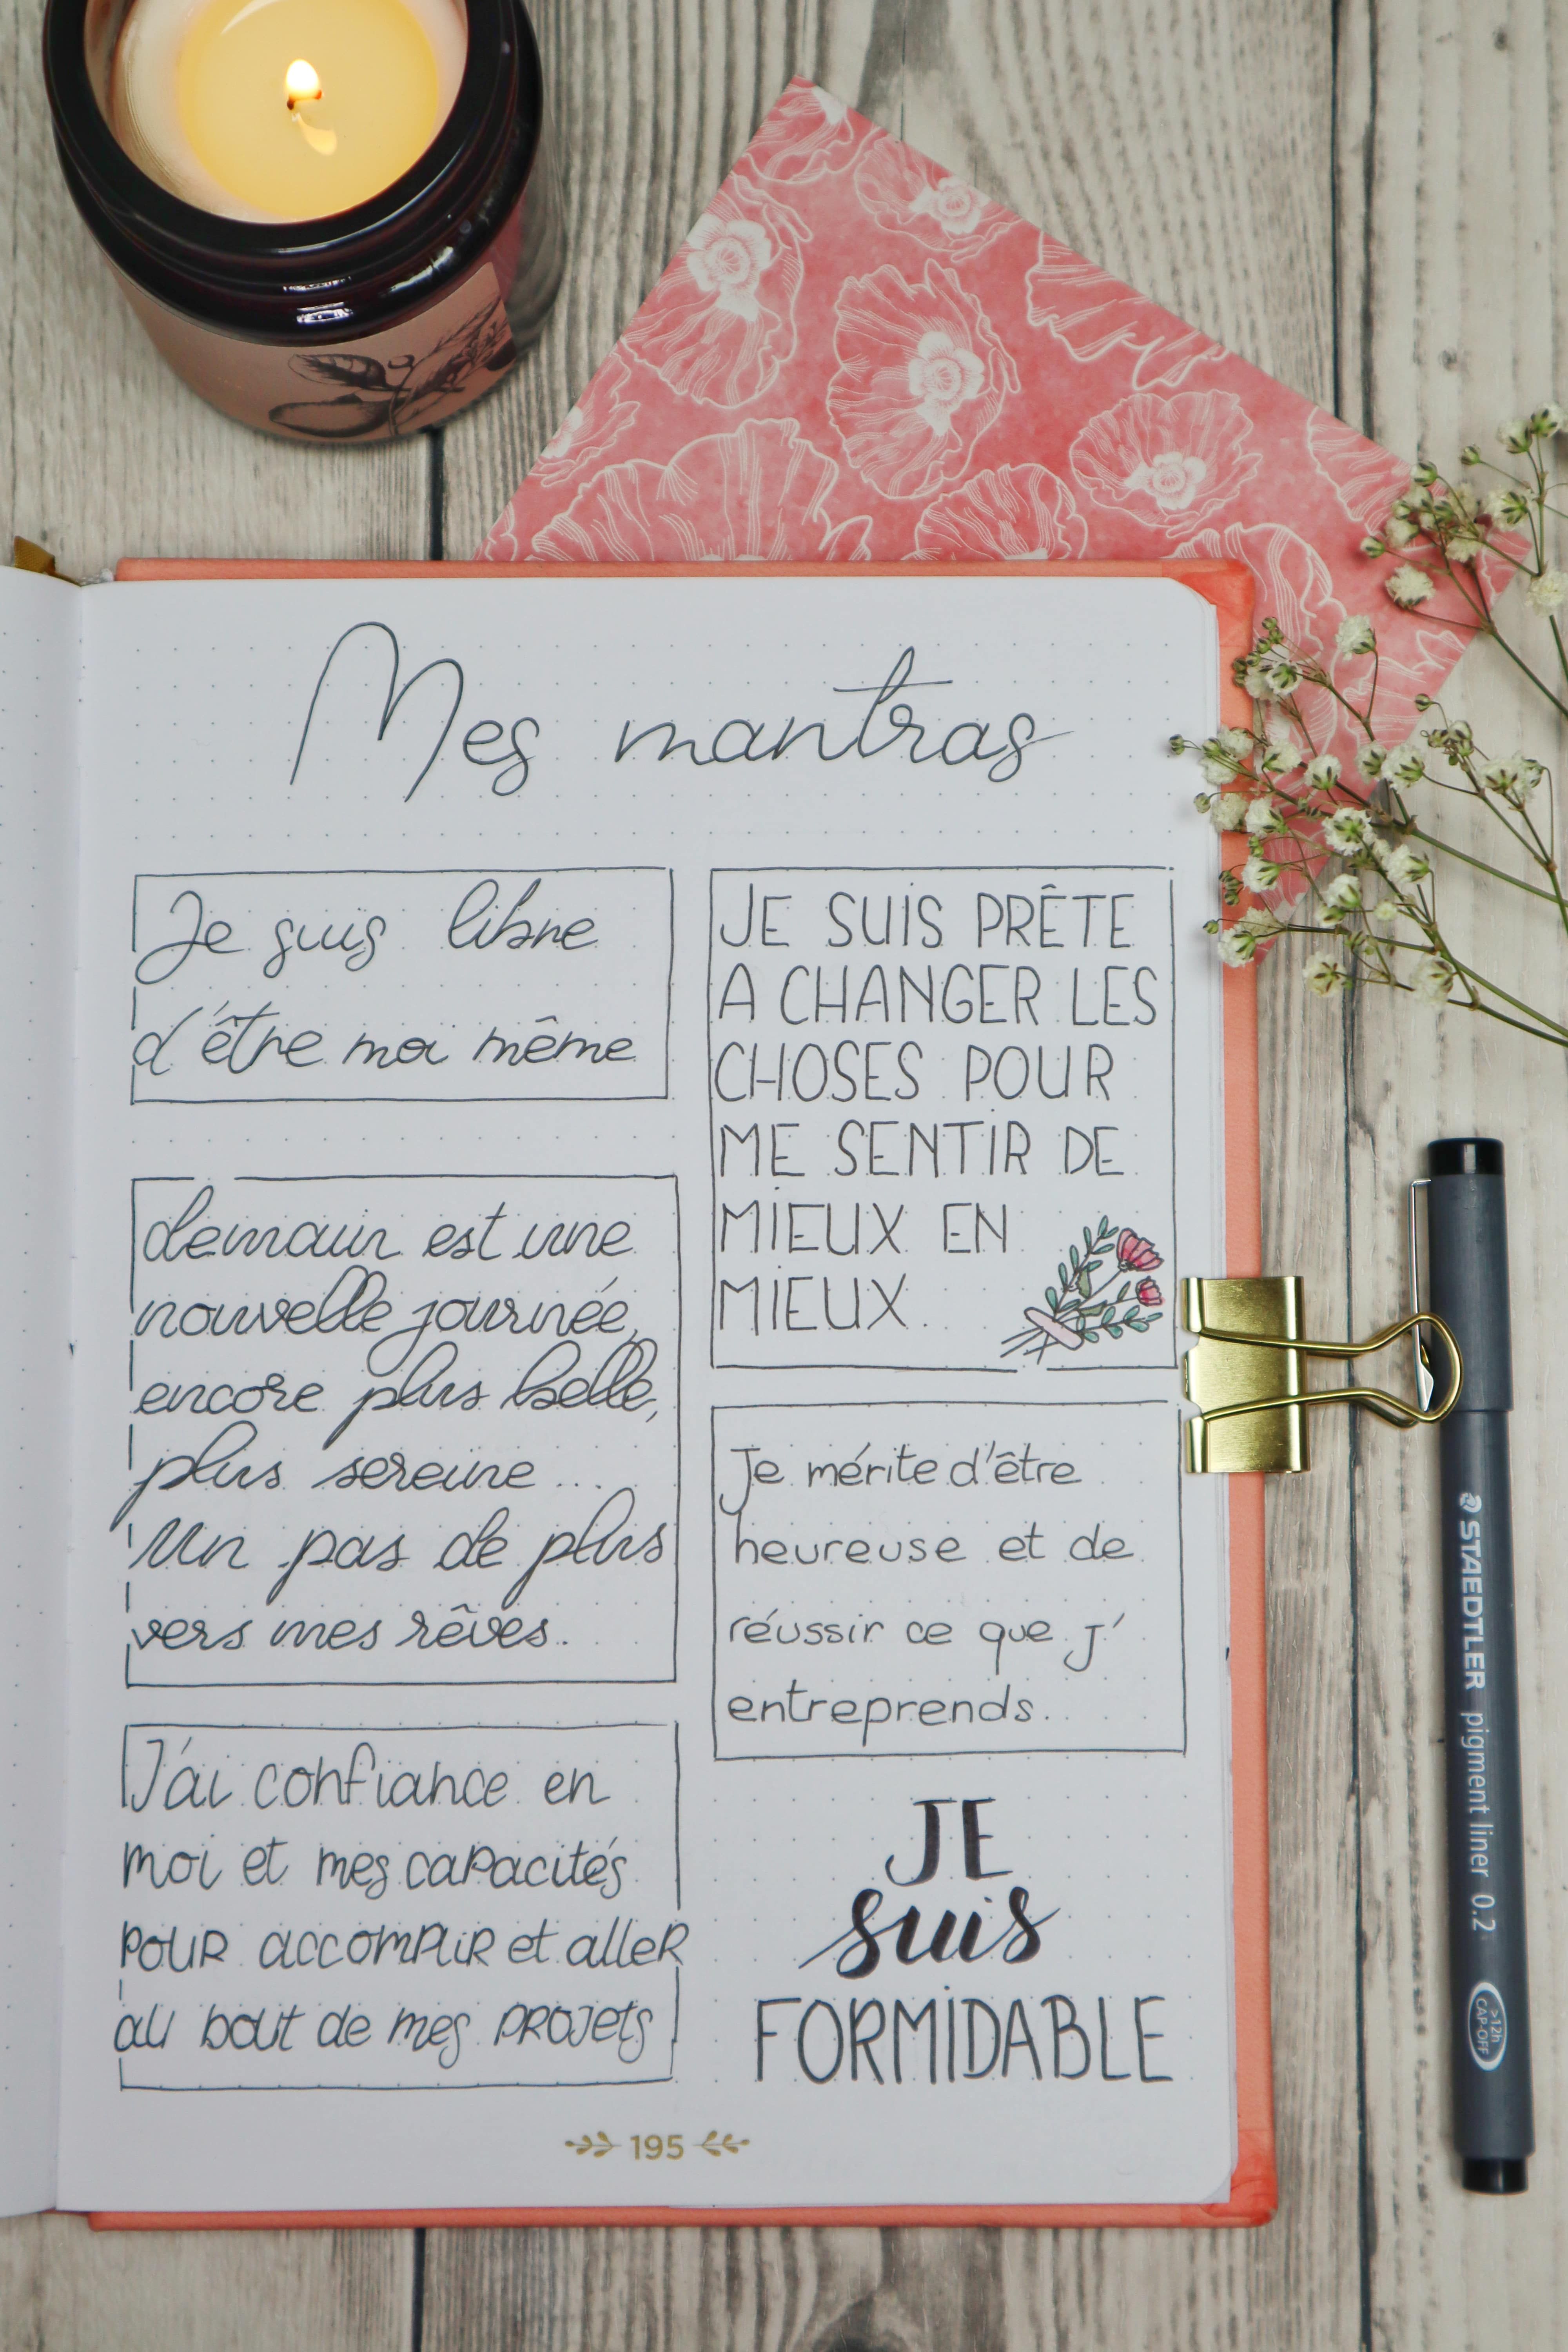 Mes mantras
Je suis libre
d'être moi même
demain est une
nouvelle journée,
encore plus belle,
plus sereine ...
Un pas de plus
vers mes rêves.
J'ai confiance en
moi et mes capacités
pour accomplir et aller
au bout de mes projets
JE SUIS PRÊTE
A CHANGER LES
CHOSES POUR
ME SENTIR DE
MIEUX EN
MIEUX.
Je mérite d'être
heureuse et de
réussir ce que j'
entreprends.
JE
suis
FORMIDABLE
195
STAEDTLER pigment liner 0.2
>12h
CAP-OFF